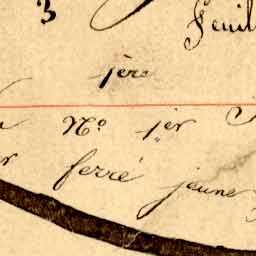 3 Feuil
1ère
No. 1er
ferré jeune